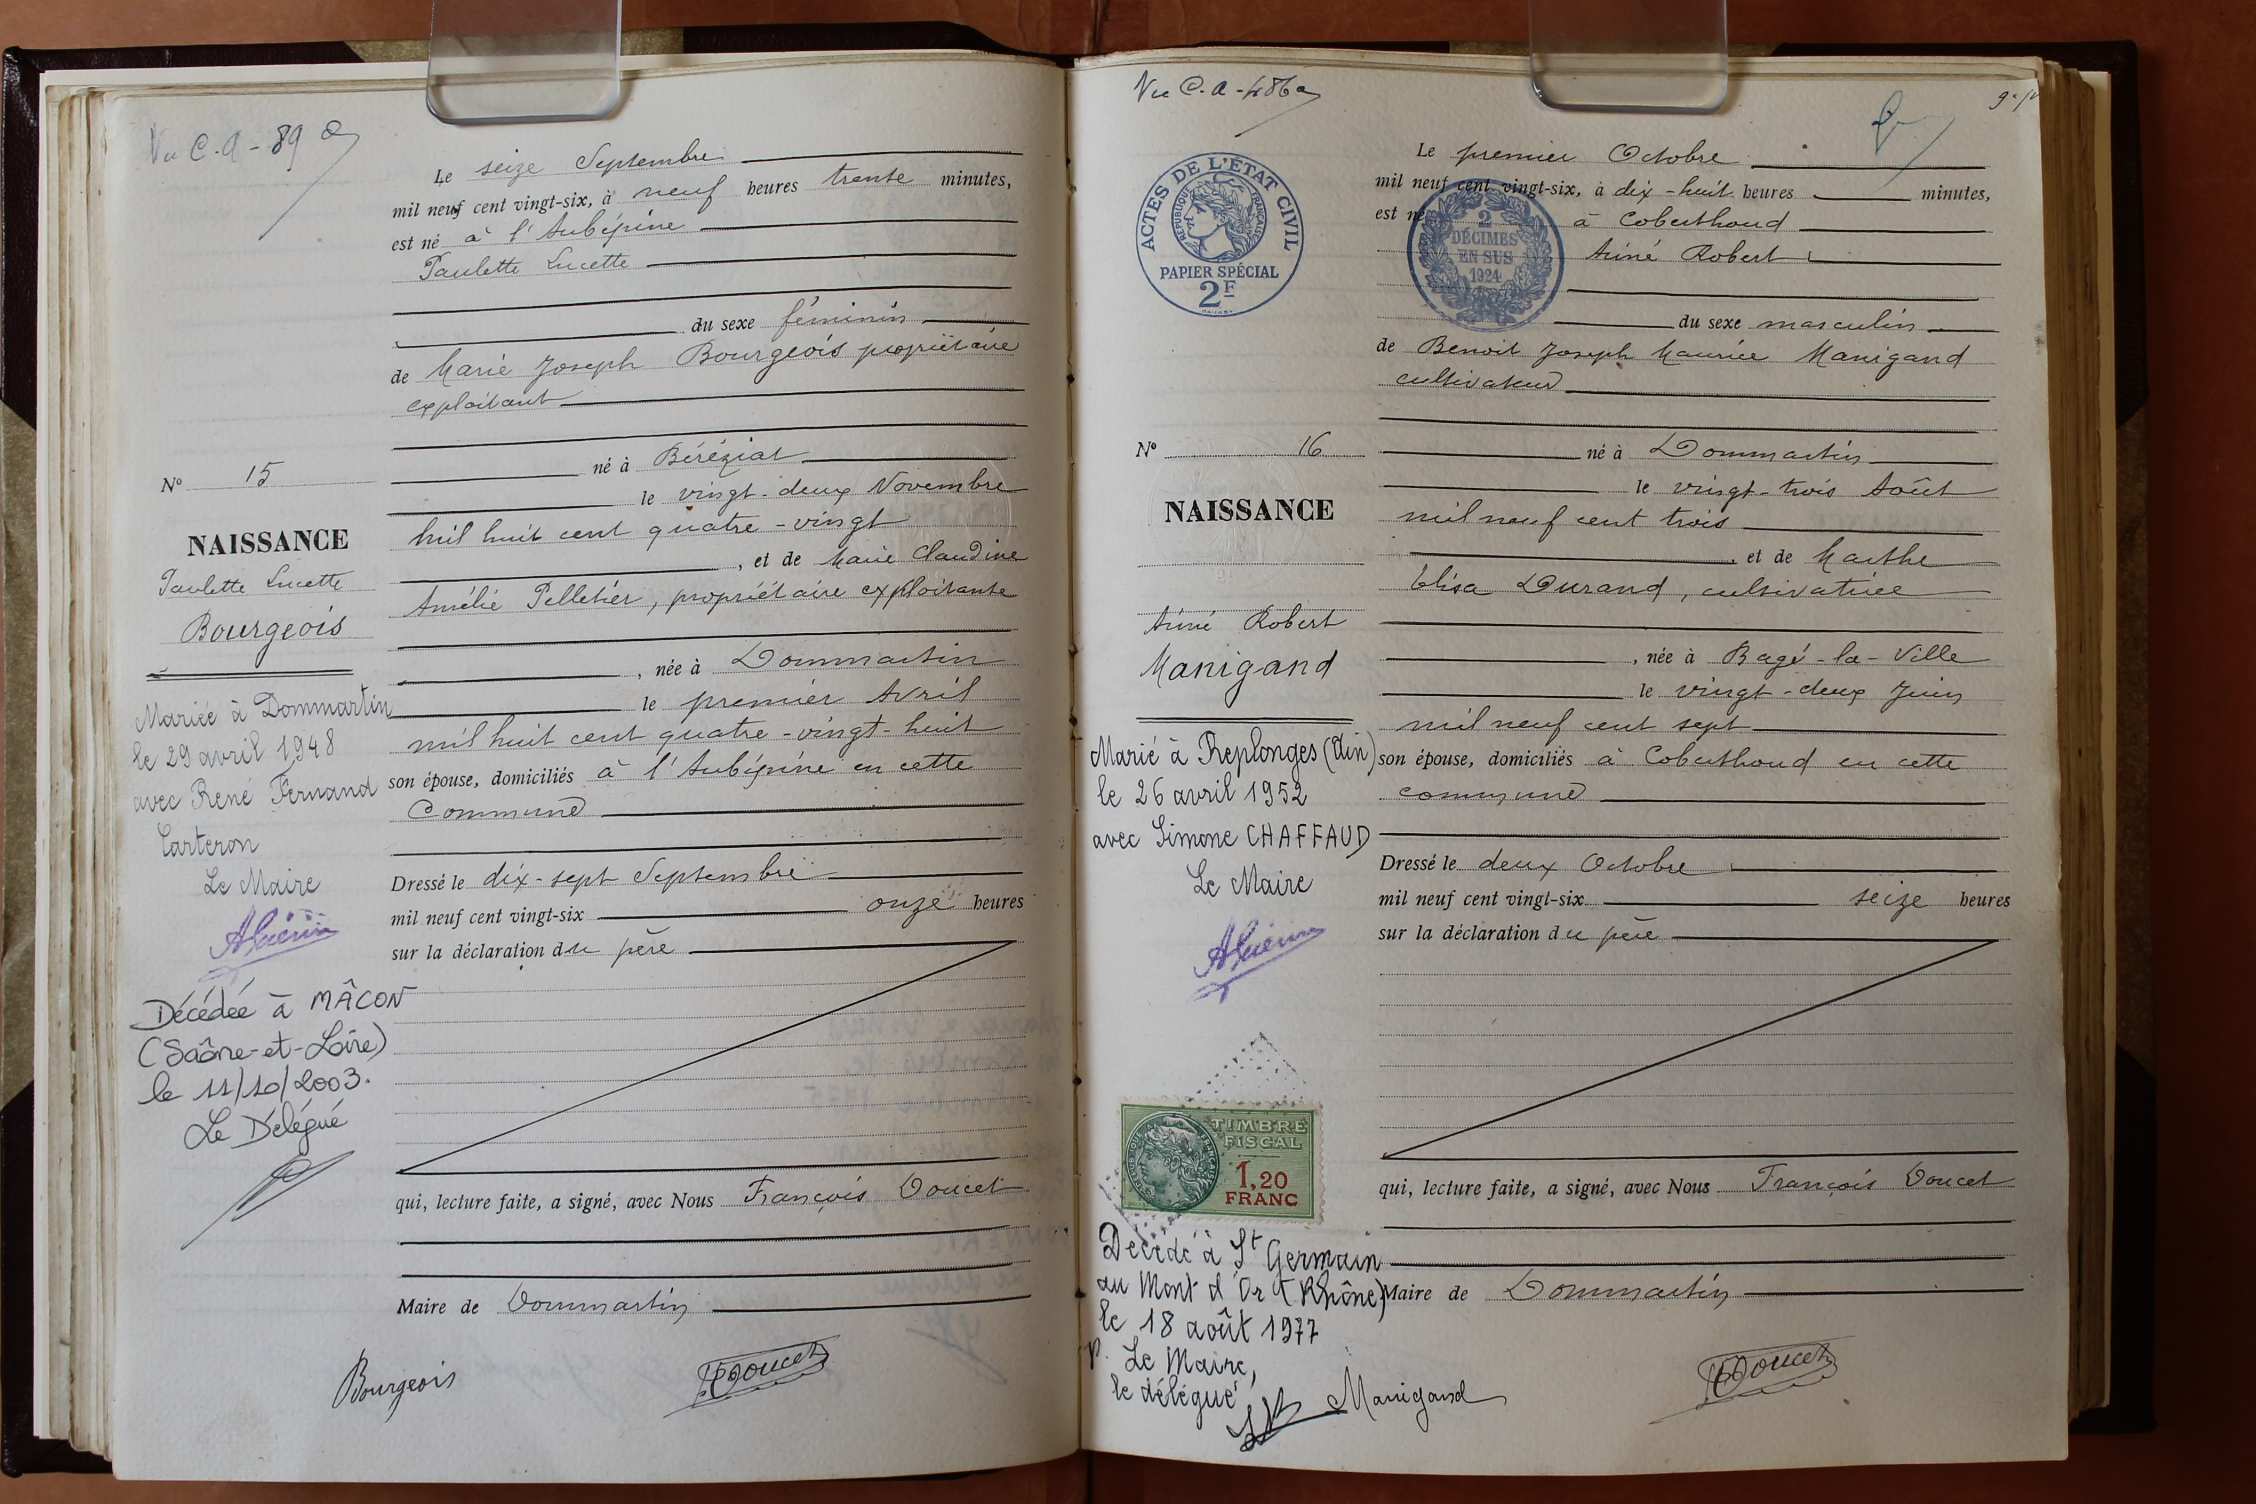 Vu C. A - 89
Le seize Septembre
mil neuf cent vingt-six, à neuf heures trente minutes,
est né à l'Aubépine
Paulette Lucette
du sexe féminin
de Marie Joseph Bourgeois propriétaire
exploitant
né à Béréziat
le vingt-deux Novembre
mil huit cent quatre-vingt
, et de Marie Claudine
Amélie Pelletier, propriétaire exploitante
, née à Dommartin
le premier Avril
mil huit cent quatre-vingt-huit
son épouse, domiciliés à l'Aubépine en cette
Commune
Dressé le dix-sept Septembre
mil neuf cent vingt-six onze heures
sur la déclaration du père
qui, lecture faite, a signé, avec Nous François Doucet
Maire de Dommartin
Bourgeois
Doucet
N° 15
NAISSANCE
Paulette Lucette
Bourgeois
Mariée à Dommartin
le 29 avril 1948
avec René Fernand
Carteron
Le Maire
AGuérin
Décédée à MÂCON
(Saône-et-Loire)
le 11/10/2003.
Le Délégué
Vu C. A - 486
ACTES DE L'ETAT CIVIL
REPUBLIQUE FRANÇAISE
PAPIER SPÉCIAL
2F
2
DÉCIMES
EN SUS
1924
Le premier Octobre
mil neuf cent vingt-six, à dix-huit heures minutes,
est né à Coberthoud
Aimé Robert
du sexe masculin
de Benoit Joseph Maurice Manigand
cultivateur
né à Dommartin
le vingt-trois Août
mil neuf cent trois
, et de Marthe
Elisa Durand, cultivatrice
, née à Bagé-la-Ville
le vingt-deux Juin
mil neuf cent sept
son épouse, domiciliés à Coberthoud en cette
commune
Dressé le deux Octobre
mil neuf cent vingt-six seize heures
sur la déclaration du père
qui, lecture faite, a signé, avec Nous François Doucet
Maire de Dommartin
Manigand
Doucet
N° 16
NAISSANCE
Aimé Robert
Manigand
Marié à Replonges (Ain)
le 26 avril 1952
avec Simone CHAFFAUD
Le Maire
AGuérin
TIMBRE
FISCAL
1,20
FRANC
Décédé à St Germain
au Mont d'Or (Rhône)
le 18 août 1977
P. Le Maire,
le délégué